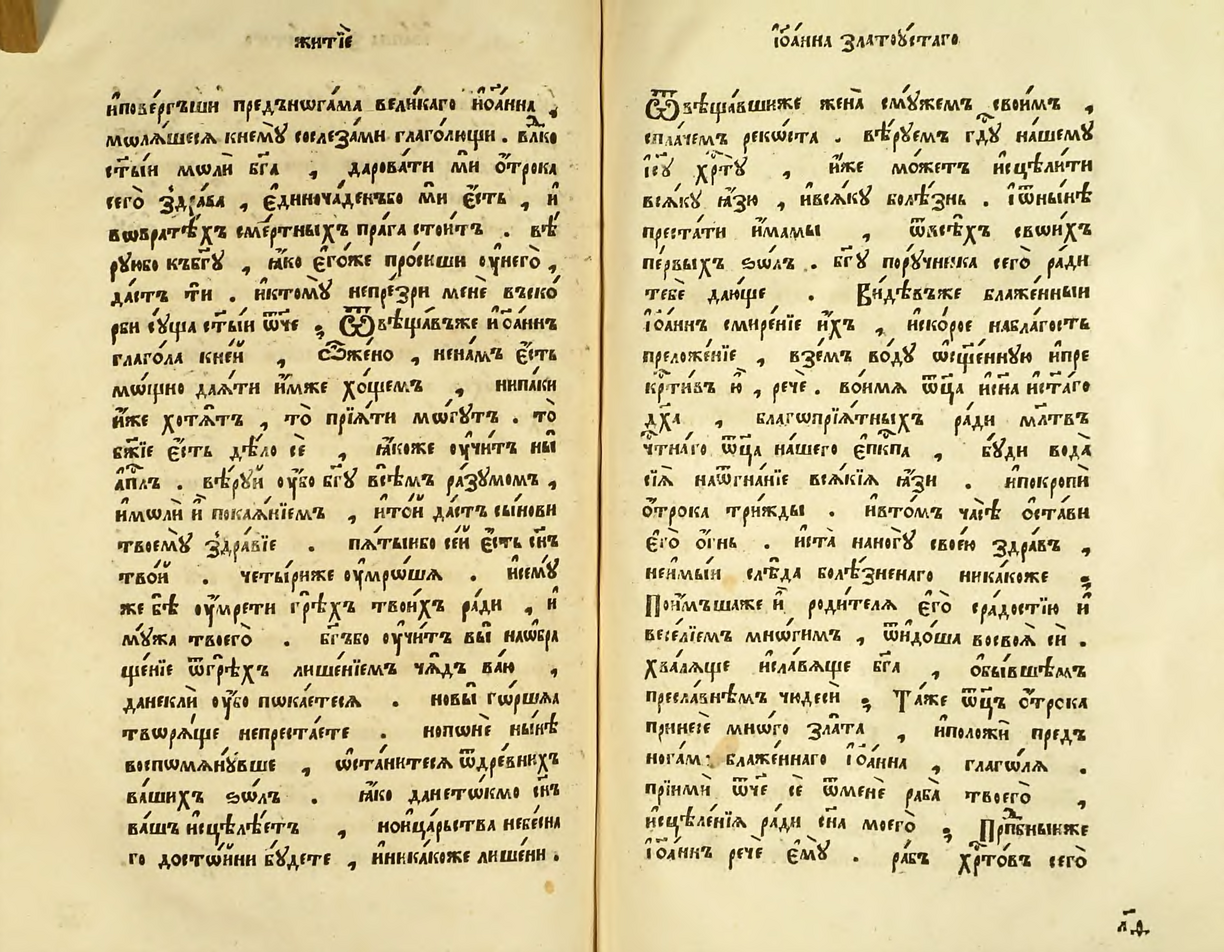 житїѐ
и҆пове́ргъши предънѡга́ма вели́каго и҆ѡа́нна ,
мѡлѧ́шесѧ кнемꙋ̀ сослеза́ми глаго́лющи . влⷣко
ст҃ы́и мѡлѝ бг҃а , дарова́ти мѝ ѻ҆́трока
сего̀ здра́ва , є҆диноча́денъбо мѝ є҆́сть , и҆
вѡвратѣ́хъ сме́ртныхъ пра́га стои́тъ . вѣ́
рꙋибо къбг҃ꙋ , ꙗ҆́ко є҆го́же про́сиши ᲂу҆него̀ ,
да́стъ тѝ . и҆ктомꙋ̀ непре́зри менѐ въско́
рби сꙋ́ща ст҃ы́и ѿч҃е ; Ѿвѣща́въже и҆ѡа́ннъ
глаго́ла кне́й , ѽжено , нена́мъ є҆́сть
мѡ́щно даѧ́ти и҆́мже хо́щемъ , нипа́ки
и҆́же хотѧ́тъ , то̀ прїѧ́ти мѡ́гꙋтъ . то̀
бж҃їе є҆́сть дѣ́ло сѐ , ꙗ҆́коже ᲂу҆чи́тъ ны̀
а҆пⷭ҇лъ . вѣ́рꙋи ᲂу҆́бо бг҃ꙋ всѣ́мъ ра́зꙋмомъ ,
и҆молѝ и҆̀ покаѧ́нїемъ , и҆то́й да́стъ сы́нови
твоемꙋ̀ здра́вїе . пѧ́тыибо се́й є҆́сть сн҃ъ
тво́й . четы́риже ᲂу҆мро́шѧ . и҆семꙋ̀
же бѣ̀ ᲂу҆мре́ти грѣ́хъ твои́хъ ра́ди , и҆
мꙋ́жа твоего̀ . бг҃ъбо ᲂу҆чи́тъ вы̀ наѡбра
ще́нїе ѿгрѣ́хъ лише́нїемъ ча́дъ ва́ю ,
данеклѝ ᲂу҆́бо пока́етесѧ . новы̀ гѡ́ршаѧ
твѡрѧ́ще непреста́ете . нопѡнѐ ны́нѣ
воспѡмѧнꙋ́вше , ѡ҆ста́нитесѧ ѿдре́внихъ
ва́шихъ ѕѡ́лъ . ꙗ҆́ко данетѡ́кмо сн҃ъ
ва́шъ и҆сцѣлѣ́етъ , нои҆ца́рьства небе́сна
го досто́йни бꙋ́дете , и҆ника́коже лише́ни .
і҆ѡа́нна златоꙋ́стаго
Ѿвѣща́вшиже жена̀ смꙋ́жемъ свои́мъ ,
спла́чемъ реко́ста . вѣ́рꙋем гдⷭ҇ꙋ на́шемꙋ
і҆с҃ꙋ хрⷭ҇тꙋ̀ , и҆́же мо́жетъ и҆сцѣли́ти
всѧ́кꙋ ꙗ҆́зю , и҆всѧ́кꙋ болѣ́знь . і҆ѿны́нѣ
преста́ти и҆́мамы , ѿвсѣ́хъ свои́хъ
пе́рвыхъ ѕѡ́лъ . бг҃ꙋ порꙋ́чника сего̀ ра́ди
тебѐ даю́ще . Ви́дѣвъже блаже́нныи
і҆ѡа́ннъ смире́нїе и҆́хъ , и҆ско́рое набла́гость
преложе́нїе , взе́мъ во́дꙋ ѡ҆сще́ннꙋю и҆пре
крⷭ҇ти́въ ю҆̀ , речѐ . вои́мѧ ѿц҃а и҆сн҃а и҆ст҃а́го
дх҃а , благѡпрїѧ́тныхъ ра́ди мл҃твъ
чⷭ҇тна́го ѿц҃а на́шего є҆пⷭ҇кпа , бꙋ́ди вода̀
сїѧ̀ наѿгна́нїе всѧ́кїѧ ꙗ҆́зи . и҆покропѝ
ѻ҆́трока три́жды . и҆вто́мъ ча́сѣ ѻ҆ста́ви
є҆го̀ ѻ҆́гнь . и҆ста̀ нано́гꙋ своє́ю здра́въ ,
неи҆мы́и слѣ́да болѣ́зненаго ника́коже ;
Пои҆́мъшаже и҆̀ роди́телѧ є҆го̀ сра́достїю и҆
весе́лїемъ мнѡ́гимъ , ѿидо́ша восвоѧ̀ сѝ .
хва́лѧще и҆сла́вѧще бг҃а , ѻ҆бы́вшемъ
пресла́внѣмъ чꙋдесѝ ; Та́же ѿц҃ъ ѻ҆́трока
принесѐ мно́го зла́та , и҆положѝ предъ
нога́ма блаже́ннаго і҆ѡа́нна , глаго́лѧ .
прїимѝ ѿч҃е сѐ ѿменѐ раба̀ твоего̀ ,
и҆сцѣле́нїѧ ра́ди сн҃а моего̀ ; Прⷣпбныиже
і҆ѡа́ннъ речѐ є҆мꙋ̀ . ра́бъ хрⷭ҇то́въ сего̀
л҃д